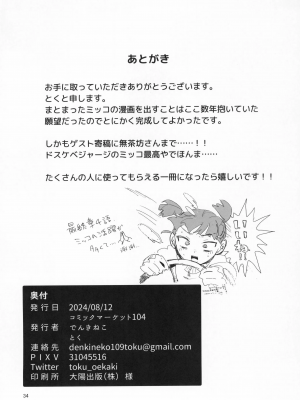 あとがき
お手に取っていただきありがとうございます。
とくと申します。
まとまったミッコの漫画を出すことはここ数年抱いていた
願望だったのでとにかく完成してよかったです。
しかもゲスト寄稿に無茶坊さんまで……！！
ドスケベジャージのミッコ最高やでほんま……
たくさんの人に使ってもらえる一冊になったら嬉しいです！！
最終章4話
ミッコの活躍が
奥付
発行日 2024/08/12
コミックマーケット104
発行者 でんきねこ
とく
連絡先 denkineko109toku@gmail.com
PIXV 31045516
Twitter toku_oekaki
印刷所 大陽出版（株）様
34